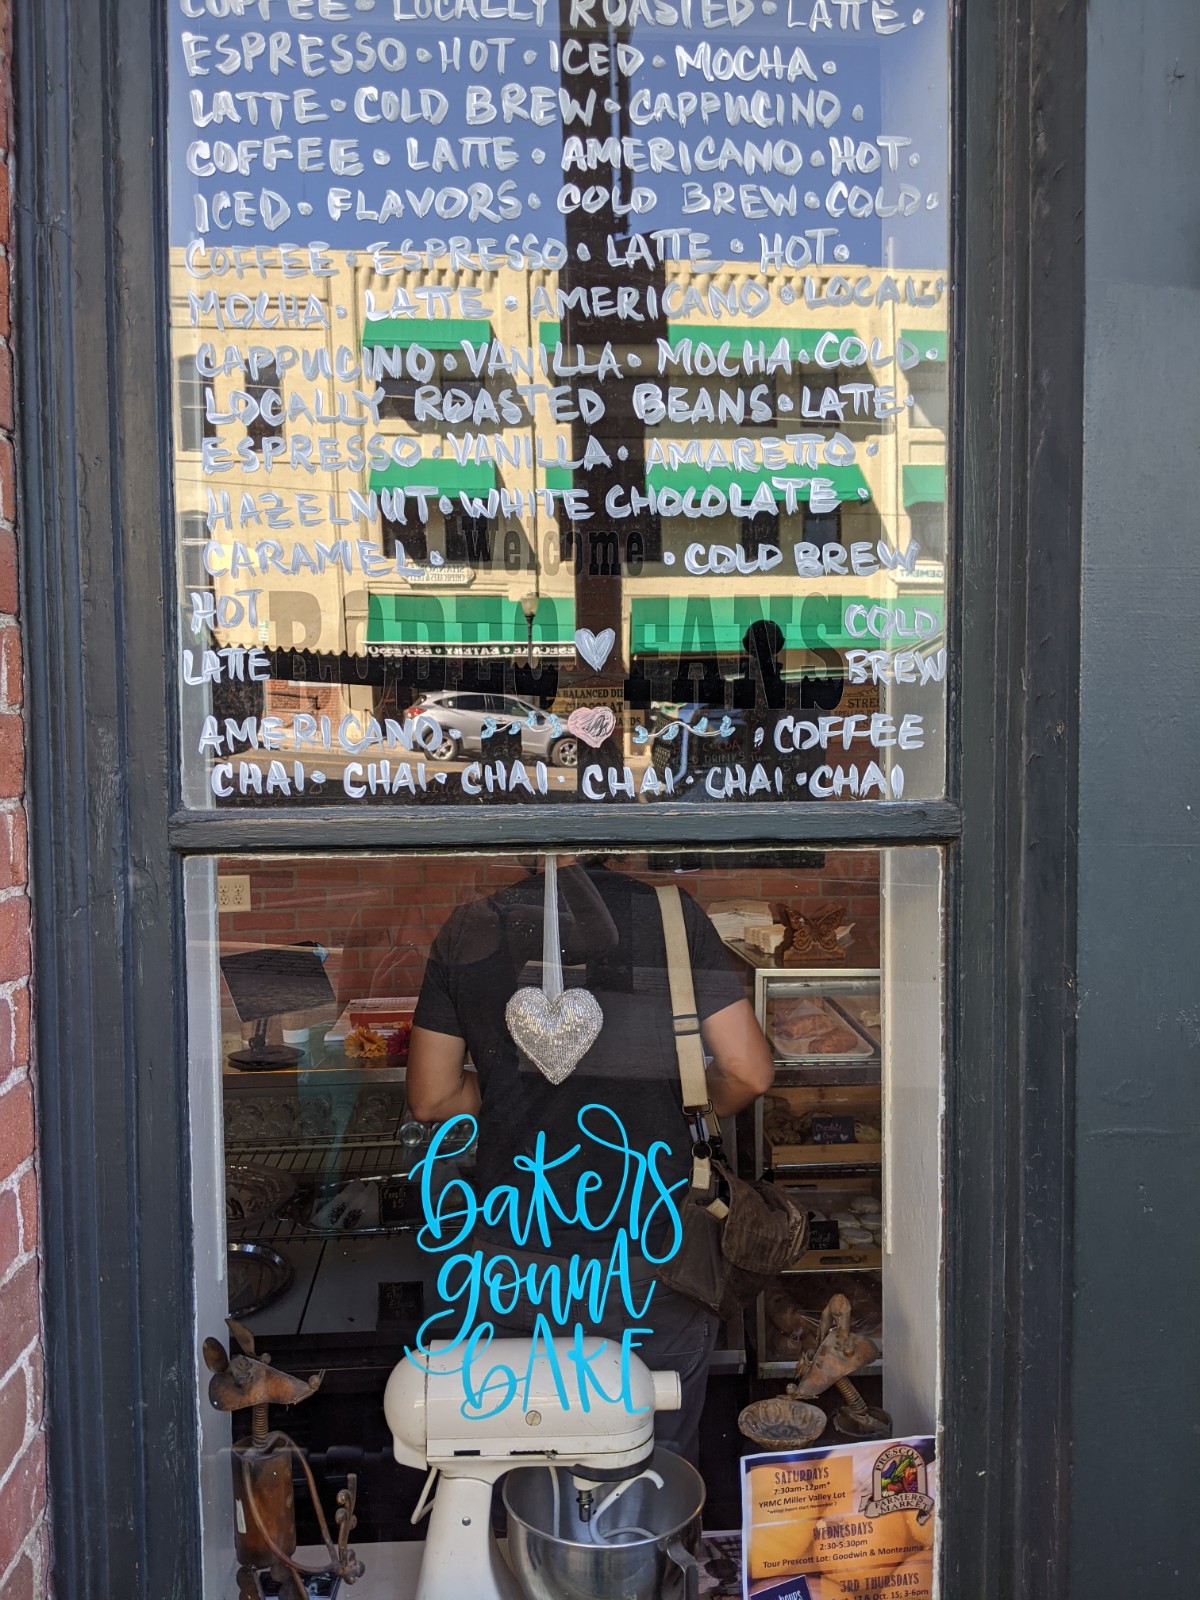 COFFEE • LOCALLY ROASTED • LATTE •
ESPRESSO • HOT • ICED • MOCHA •
LATTE • COLD BREW • CAPPUCINO •
COFFEE • LATTE • AMERICANO • HOT •
ICED • FLAVORS • COLD BREW • COLD •
COFFEE • ESPRESSO • LATTE • HOT •
MOCHA • LATTE • AMERICANO • LOCAL •
CAPPUCINO • VANILLA • MOCHA • COLD •
LOCALLY ROASTED BEANS • LATTE •
ESPRESSO • VANILLA • AMARETTO •
HAZELNUT • WHITE CHOCOLATE •
CARAMEL • • COLD BREW
Welcome
RODEO FANS
HOT COLD
LATTE BREW
AMERICANO • • COFFEE
CHAI • CHAI • CHAI • CHAI • CHAI • CHAI
bakers
gonnA
bAKE
PRESCOTT
FARMERS
MARKET
SATURDAYS
7:30am-12pm*
YRMC Miller Valley Lot
WEDNESDAYS
2:30-5:30pm
Tour Prescott Lot: Goodwin & Montezuma
3RD THURSDAYS
& Oct. 15; 3-6pm